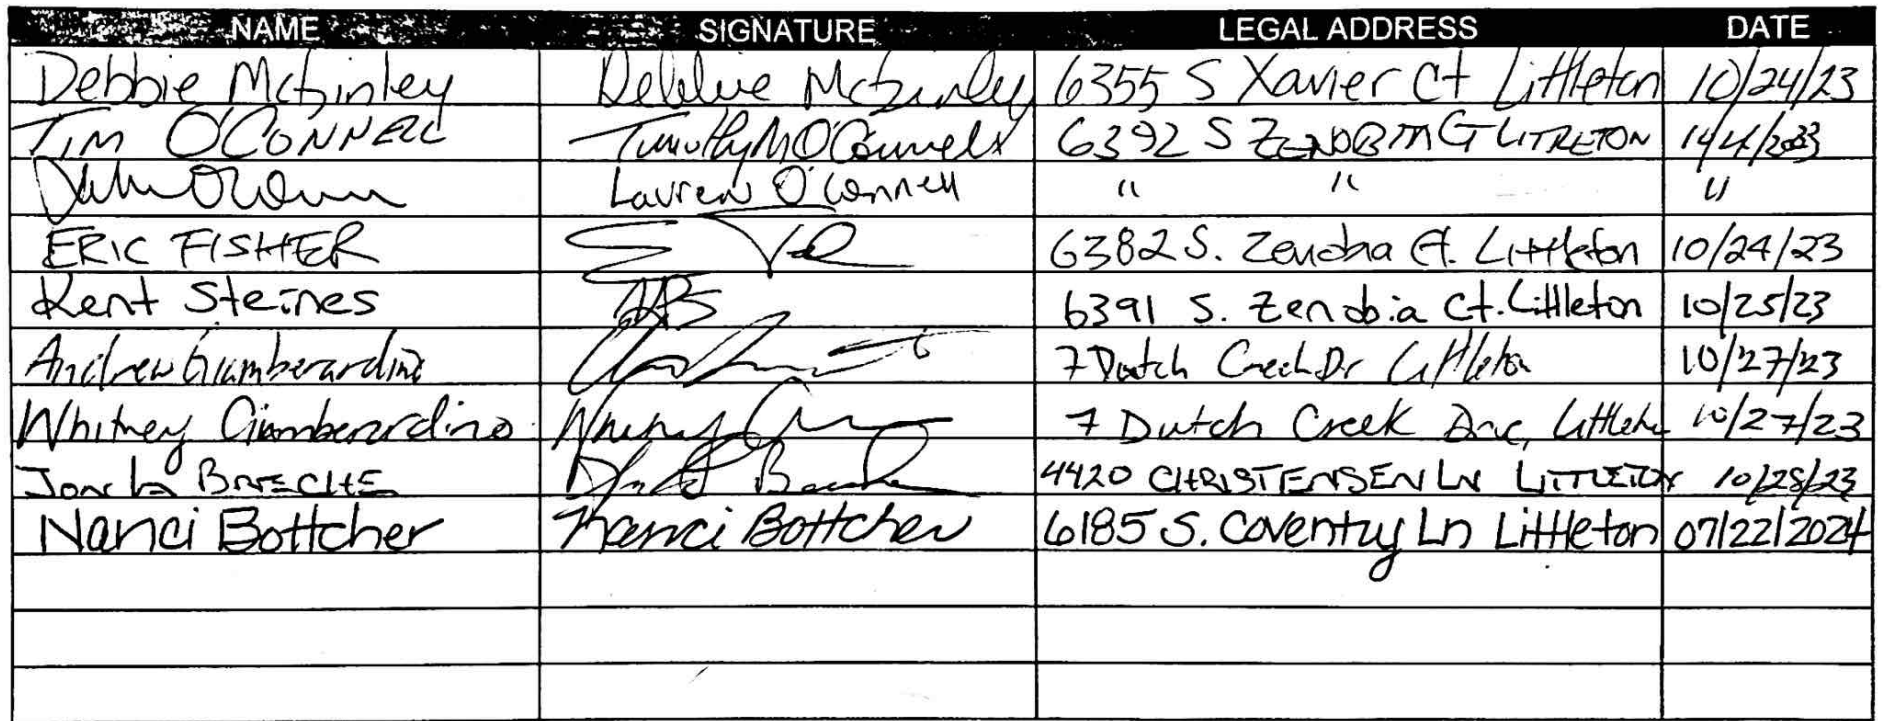 NAME SIGNATURE LEGAL ADDRESS DATE
Debbie McGinley Debbie McGinley 6355 S Xavier Ct Littleton 10/24/23
TIM O'CONNELL Timothy M O'Connell 6392 S ZENOBIA CT LITTLETON
Lauren O'Connell " " "
ERIC FISHER 6382 S. Zenobia Ct. Littleton 10/24/23
Kent Steines 6391 S. Zenobia Ct. Littleton 10/25/23
Andrew Giamberardino 7 Dutch Creek Dr Littleton 10/27/23
Whitney Giamberardino Whitney 7 Dutch Creek Littleton 10/27/23
4420 CHRISTENSEN LN LITTLETON 10/28/23
Nanci Bottcher Nanci Bottcher 6185 S. Coventry Ln Littleton 07/22/2024